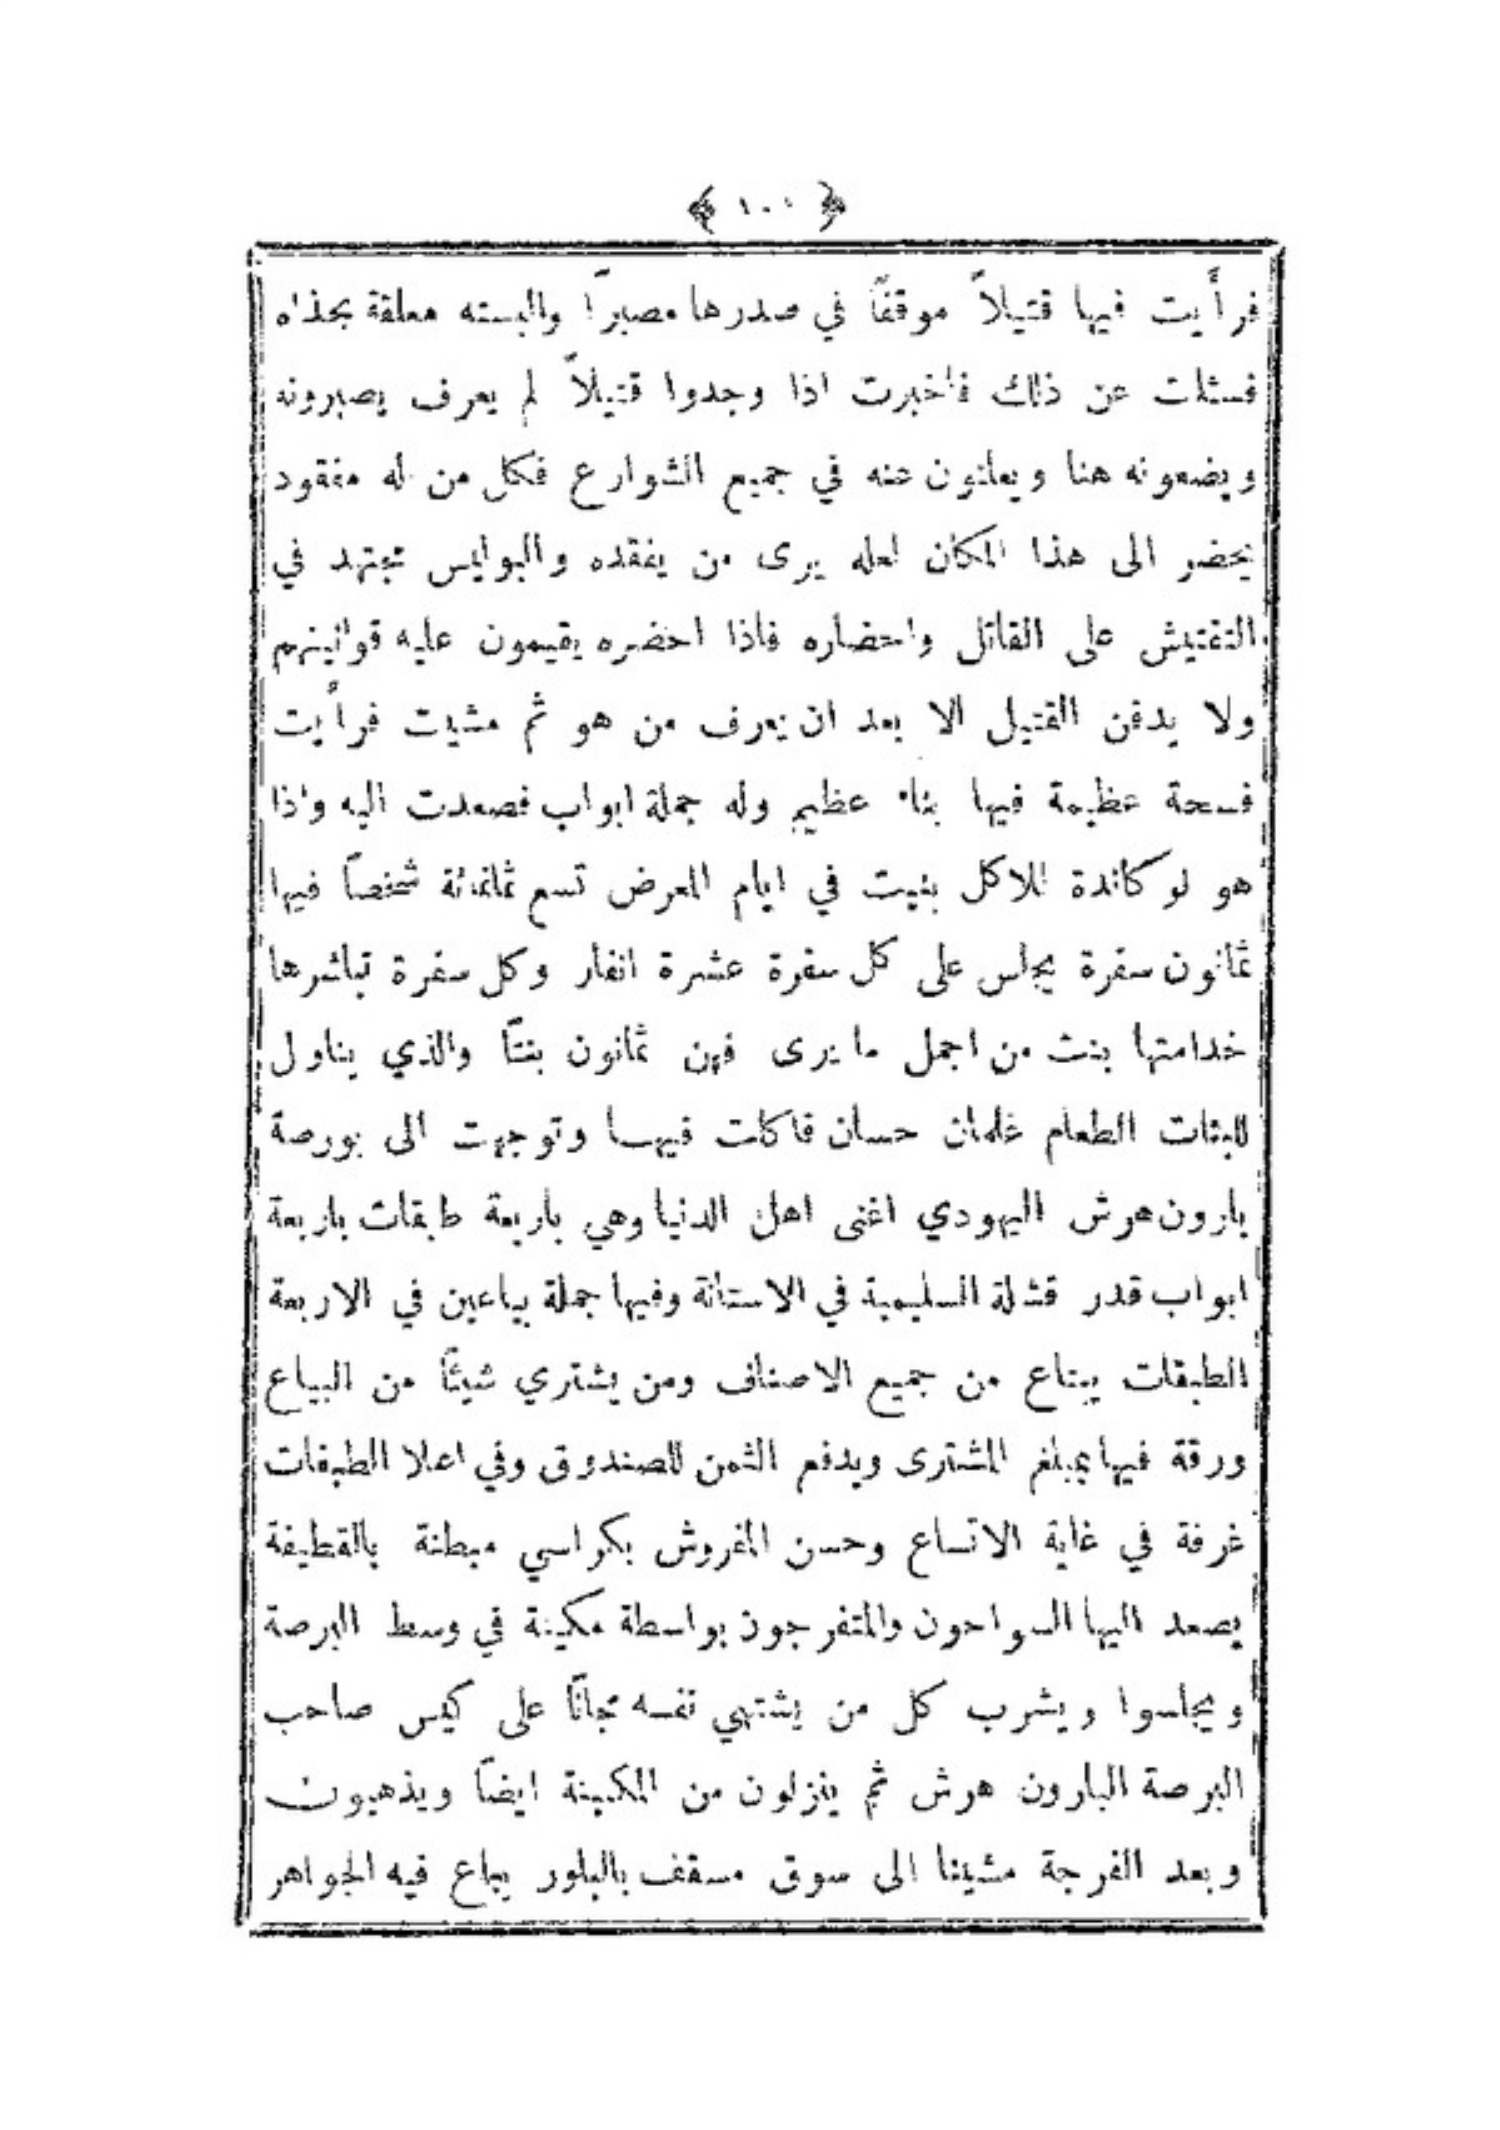 ﴿ ١٠٠ ﴾
فرأيت فيها قتيلاً موقفًا في صدرها مصبرًا والبسته معلقة بحذاه
فسئلت عن ذلك فاخبرت اذا وجدوا قتيلاً لم يعرف يصبرونه
ويضعونه هنا ويعلنون عنه في جميع الشوارع فكل من له مفقود
يحضر الى هذا المكان لعله يرى من يفقده والبوليس تجتهد في
التفتيش على القاتل واحضاره فاذا احضره يقيمون عليه قوانينهم
ولا يدفن القتيل الا بعد ان يعرف من هو ثم مشيت فرأيت
فسحة عظيمة فيها بناء عظيم وله جملة ابواب فصعدت اليه واذا
هو لوكاندة للاكل بنيت في ايام المعرض تسع ثمانمائة شخصًا فيها
ثمانون سفرة يجلس على كل سفرة عشرة انفار وكل سفرة تباشرها
خدامتها بنت من اجمل ما يرى فهن ثمانون بنتًا والذي يناول
للبنات الطعام غلمان حسان فاكلت فيها وتوجهت الى بورصة
بارون هرش اليهودي اغنى اهل الدنيا وهي باربعة طبقات باربعة
ابواب قدر قشلة السليمية في الاستانة وفيها جملة بياعين في الاربعة
الطبقات يبتاع من جميع الاصناف ومن يشتري شيئًا من البياع
ورقة فيها بمبلغ المشترى ويدفع الثمن للصندوق وفي اعلا الطبقات
غرفة في غاية الاتساع وحسن المفروش بكراسي مبطنة بالقطيفة
يصعد اليها السواحون والمتفرجون بواسطة مكينة في وسط البرصة
ويجلسوا ويشرب كل من يشتهي نفسه مجانًا على كيس صاحب
البرصة البارون هرش ثم ينزلون من المكينة ايضًا ويذهبون
وبعد الفرجة مشينا الى سوق مسقف بالبلور يباع فيه الجواهر